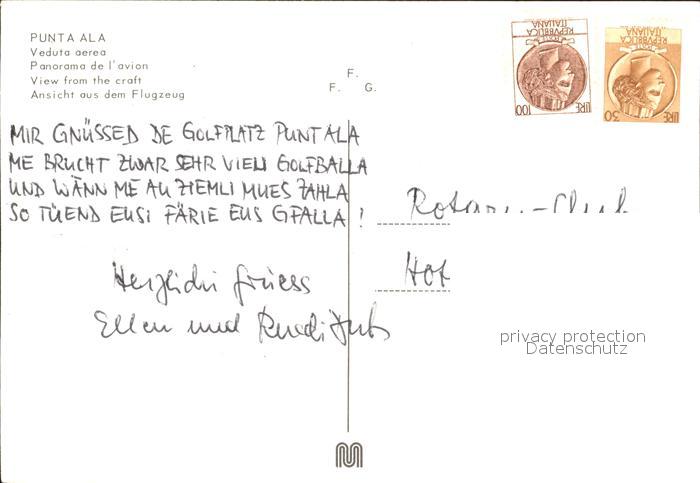 PUNTA ALA
Veduta aerea
Panorama de l'avion
View from the craft
Ansicht aus dem Flugzeug
F.
F. G.
POSTE
REPVBBLICA
ITALIANA
LIRE 100
POSTE
REPVBBLICA
ITALIANA
LIRE 30
MIR GNÜSSED DE GOLFPLATZ PUNTALA
ME BRUCHT ZWAR SEHR VIELI GOLFBALLA
UND WÄNN ME AU ZIEMLI MUES ZAHLA
SO TÜEND EUSI FÄRIE EUS GFALLA !
Rotary-Club
Hot
Herzlichi Grüess
Ellen und Ruedi
privacy protection
Datenschutz